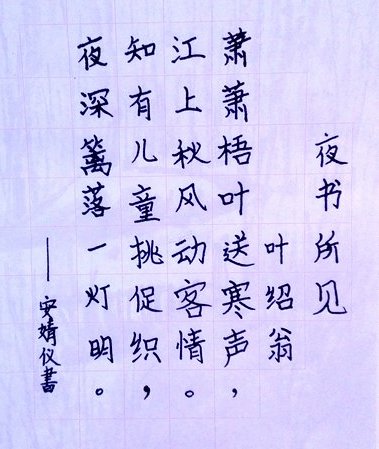 夜书所见
叶绍翁
萧萧梧叶送寒声，
江上秋风动客情。
知有儿童挑促织，
夜深篱落一灯明。
——安婧仪書